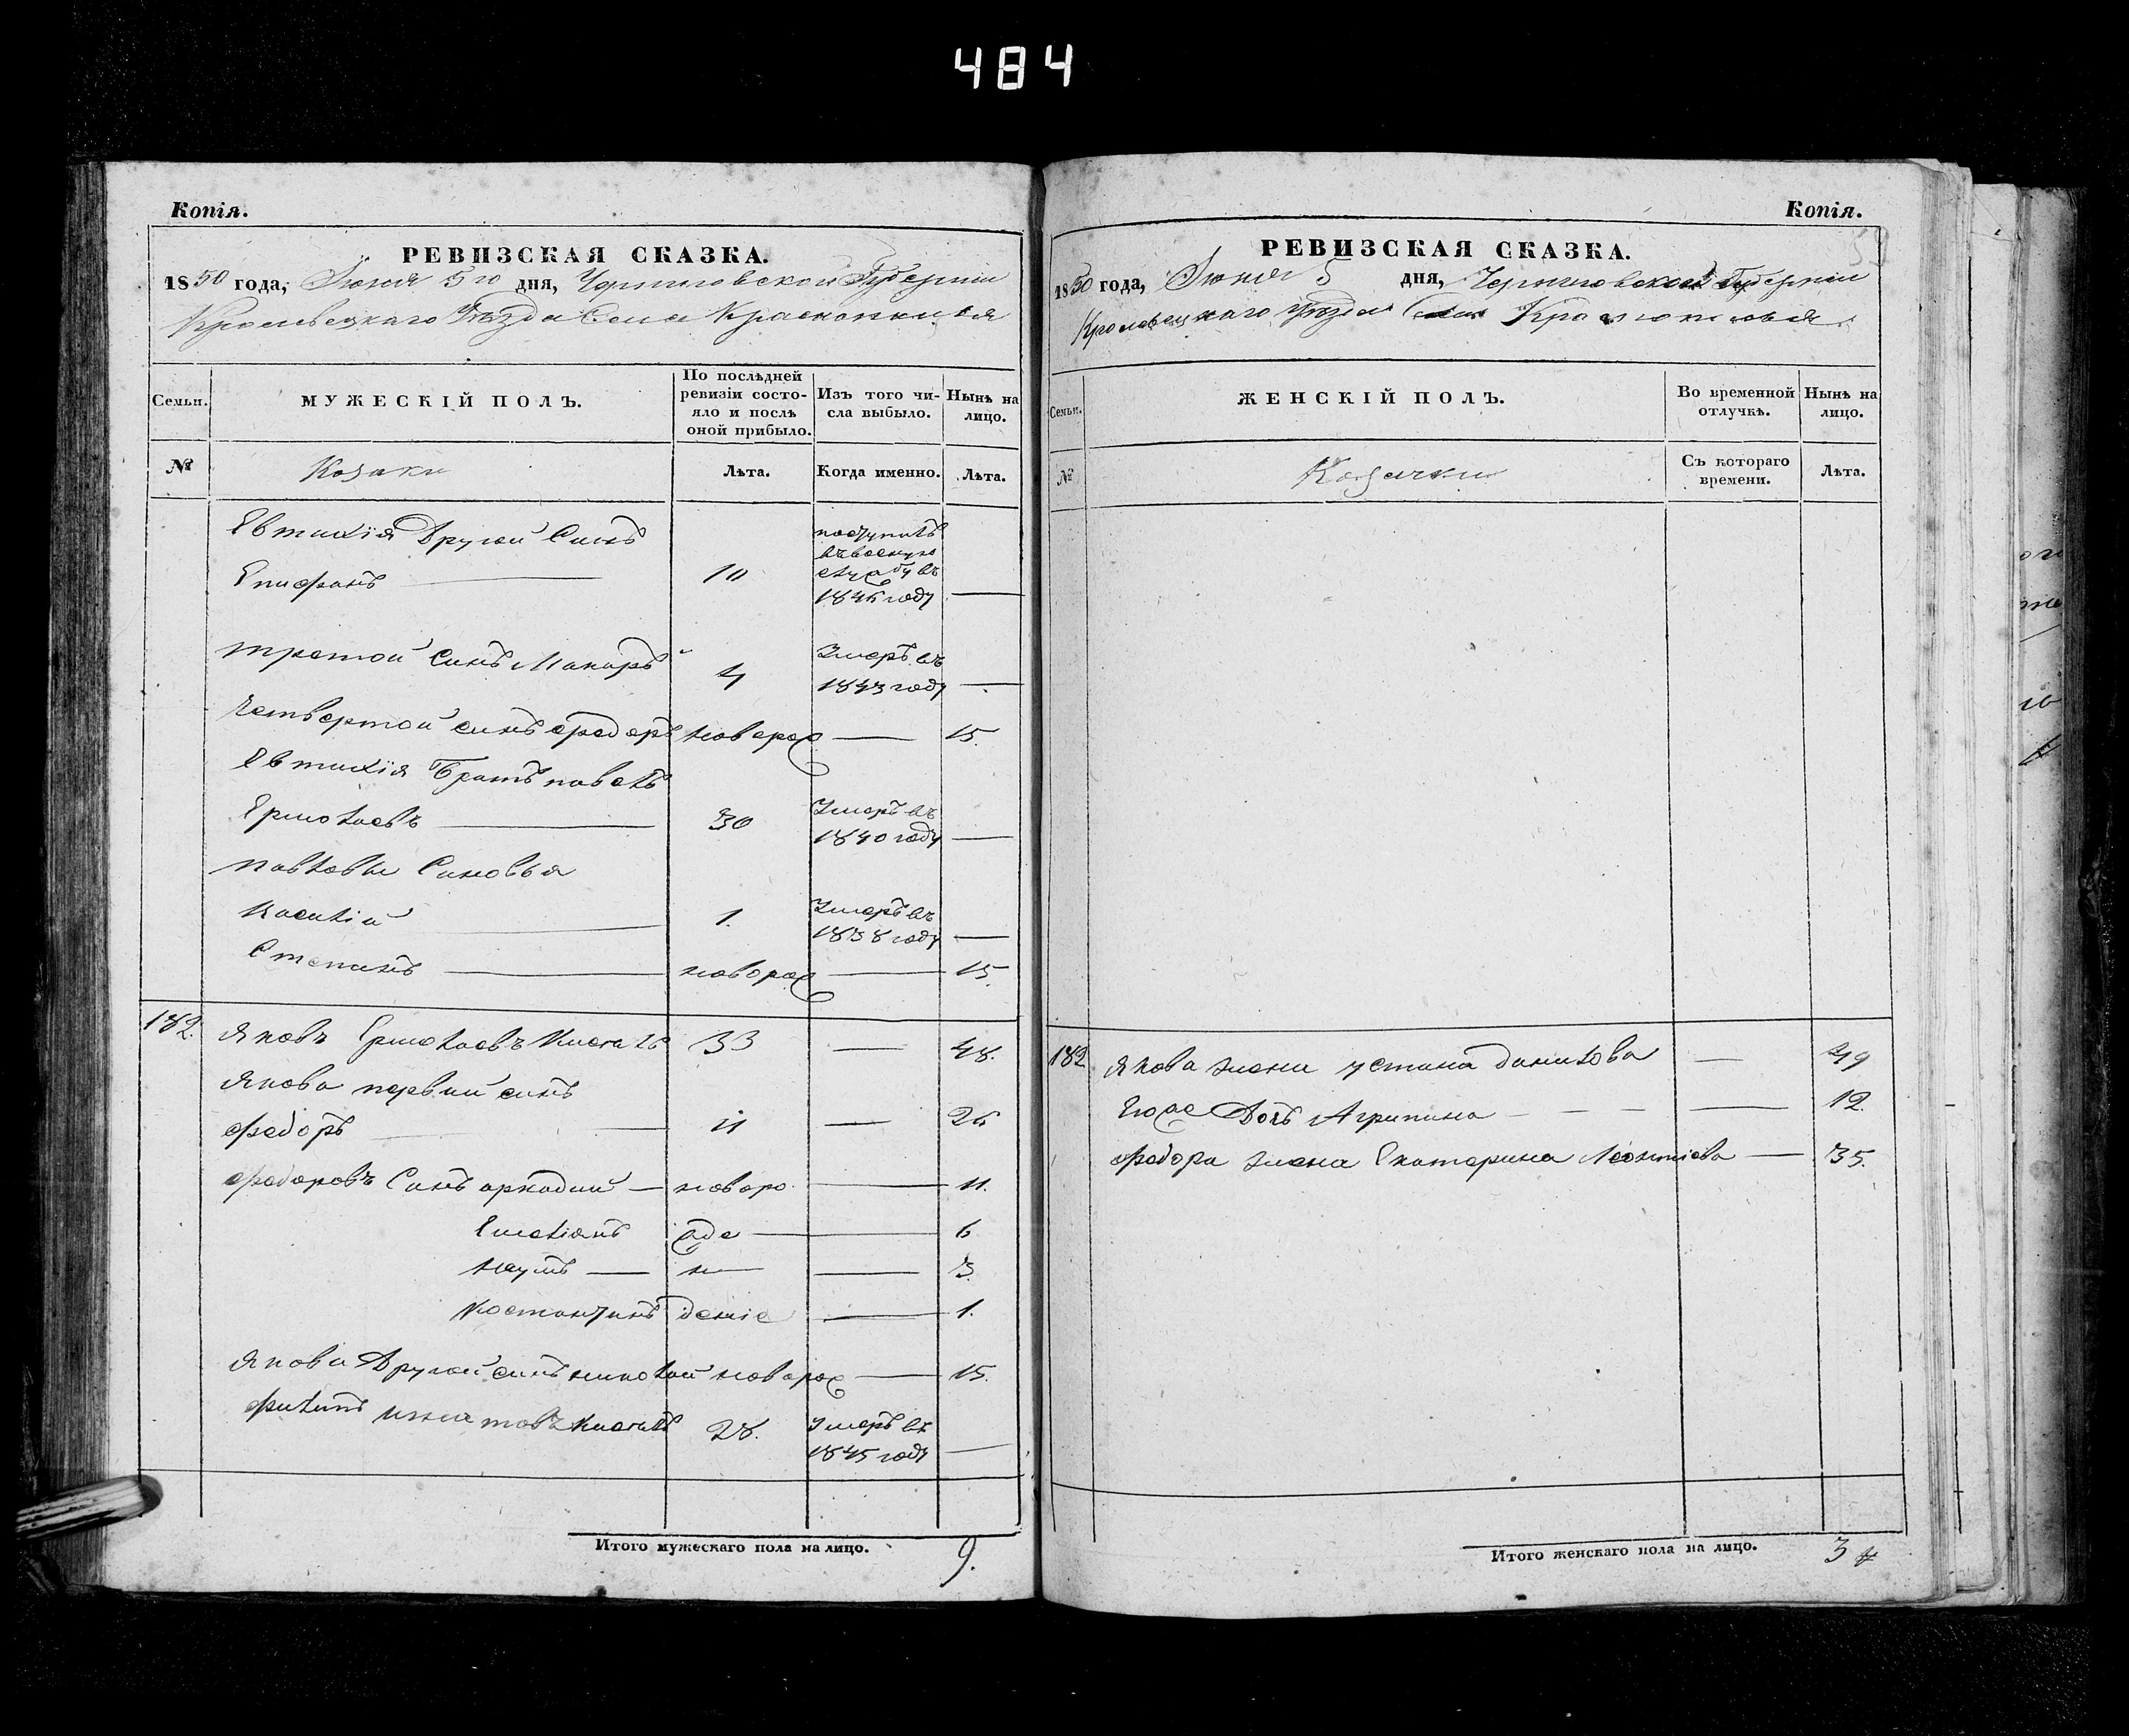 484
Копія.
РЕВИЗСКАЯ СКАЗКА.
1850 года, Іюня 5го дня, Черниговской Губерніи
Кролевецкаго Уѣзда Села Краснополья
Семьи.
МУЖЕСКІЙ ПОЛЪ.
По послѣдней
ревизіи состо-
яло и послѣ
оной прибыло.
Изъ того чи-
сла выбыло.
Нынѣ на
лицо.
№
Козаки
Лѣта.
Когда именно.
Лѣта.
Евтихія Другой Синъ
Епифанъ 10 поступилъ въ военую службу въ 1846 году —
третой Синъ Макаръ 4 Умеръ въ 1843 году —
Четвертой синъ Федоръ поворож — 15.
Евтихія Братъ павелъ
Ермолаевъ 30 Умеръ въ 1840 году —
павловы Синовья
Василій 1. Умеръ въ 1838 году —
Степанъ новорож — 15.
182. Яковъ Ермолаевъ 33 — 48.
Якова первий синъ
Федоръ 11 — 26
Федоровъ Синъ аркадии — новоро — 11.
Емеліанъ жде — 6
наумъ — н — 3.
Костантинъ деніе — 1.
Якова Другой синъ николай новорож — 15.
Филипъ 28. Умеръ въ 1845 году —
Итого мужескаго пола на лицо. 9.
Копія.
РЕВИЗСКАЯ СКАЗКА.
1850 года, Іюня 5 дня, Черниговской Губерніи
Кролевецкаго Уѣзда Села Краснополья
Семьи.
ЖЕНСКІЙ ПОЛЪ.
Во временной
отлучкѣ.
Нынѣ на
лицо.
№
Козачки
Съ котораго
времени.
Лѣта.
182 Якова жена устина данилова — 49
Егоже Дочь Агрипина — 12.
Федора жена Екатерина Леонтіева — 35.
Итого женскаго пола на лицо. 3